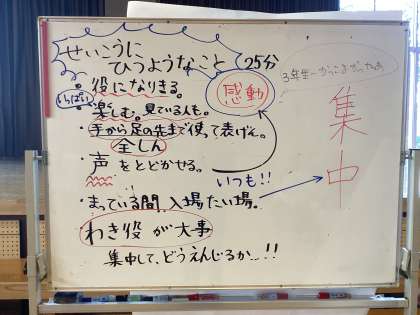 せいこうに
ひつようなこと 25分
・役になりきる。
いっぱい
・楽しむ。見ている人も。
感動
3年生
・手から足の先まで使って表げん。
全しん
・声をとどかせる。
いつも!!
・まっている間、入場たい場。
集中
わき役が大事
集中して、どうえんじるか…!!